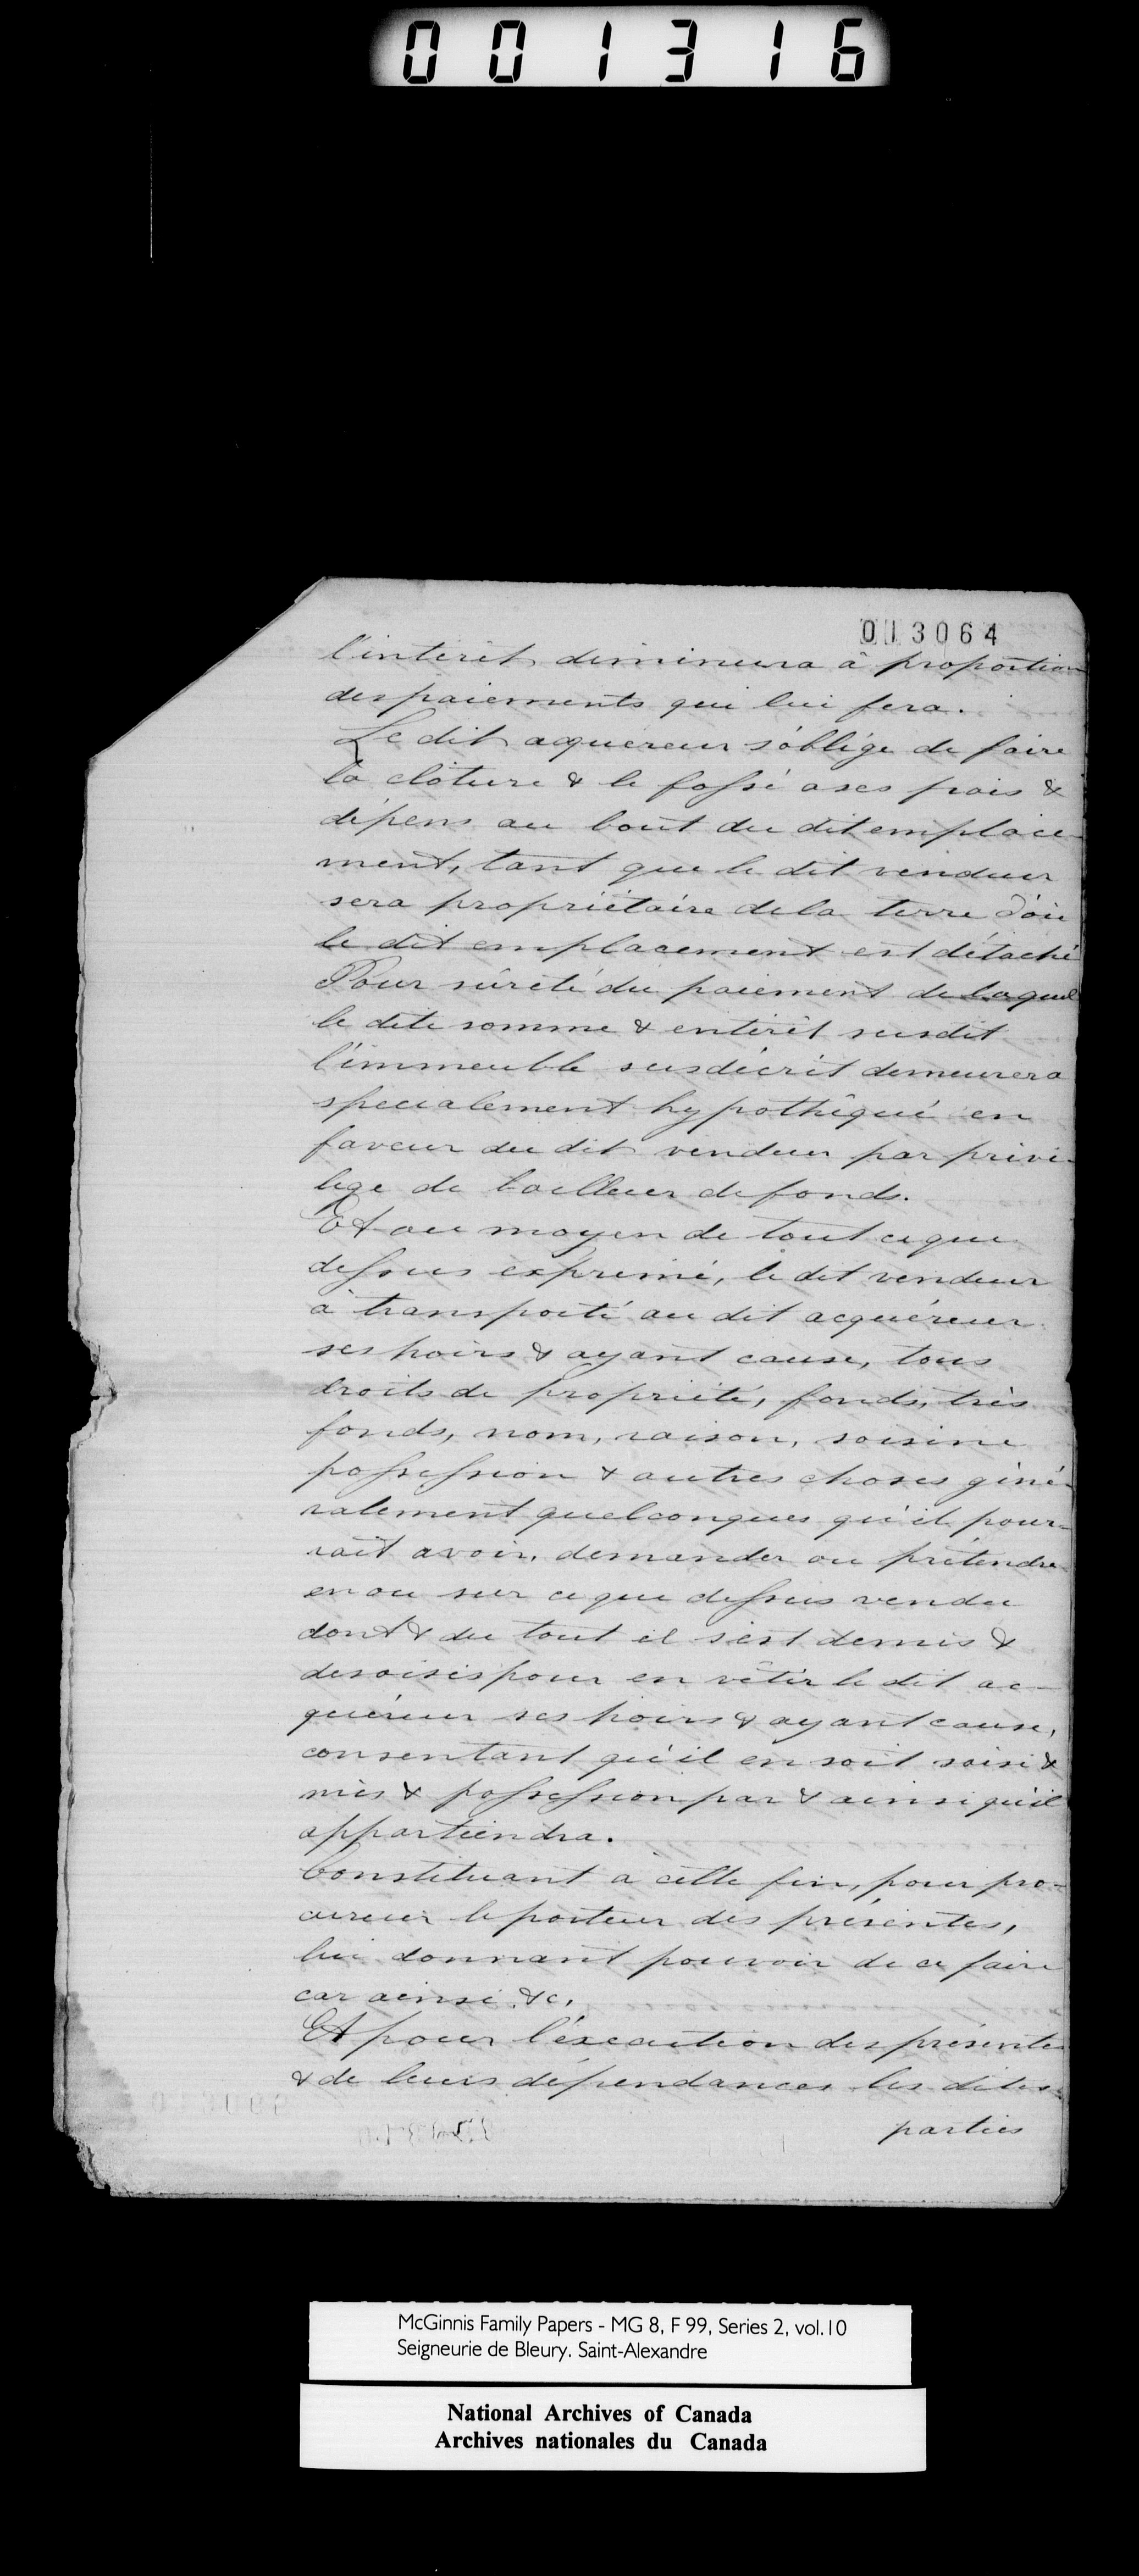 001316
013064
l'intérêt diminuera à proportion
des paiements qui lui fera.
Le dit acquereur s'oblige de faire
la clôture & le fossé a ses frais &
dépens au bout du dit emplace-
ment, tant que le dit vendeur
sera propriétaire de la terre d'où
le dit emplacement est détaché
Pour sûreté du paiement de laquel
le dite somme & entérêt susdit
l'immeuble susdécrit demeurera
specialement hypothéqué en
faveur du dit vendeur par privi-
lege de bailleur de fonds.
Et au moyen de tout ce que
dessus exprimé, le dit vendeur
à transporté au dit acquéreur
ses hoirs & ayant cause, tous
droits de propriété, fonds, très
fonds, nom, raison, saisine
possession & autres choses géné-
ralement quelconques qu'il pour-
rait avoir, demander ou prétendre
en ou sur ce que dessus vendu
dont & du tout il s'est demis &
desaisis pour en vêtir le dit ac-
quéreur ses hoirs & ayant cause,
consentant qu'il en soit saisi &
mis & possession par & ainsi qu'il
appartiendra.
Constituant à cette fin, pour pro-
cureur le porteur des présentes,
lui donnant pouvoir de ce faire
car ainsi &c.
Et pour l'éxecution des présentes
& de leurs dépendances les dites
parties
McGinnis Family Papers - MG 8, F 99, Series 2, vol.10
Seigneurie de Bleury. Saint-Alexandre
National Archives of Canada
Archives nationales du Canada